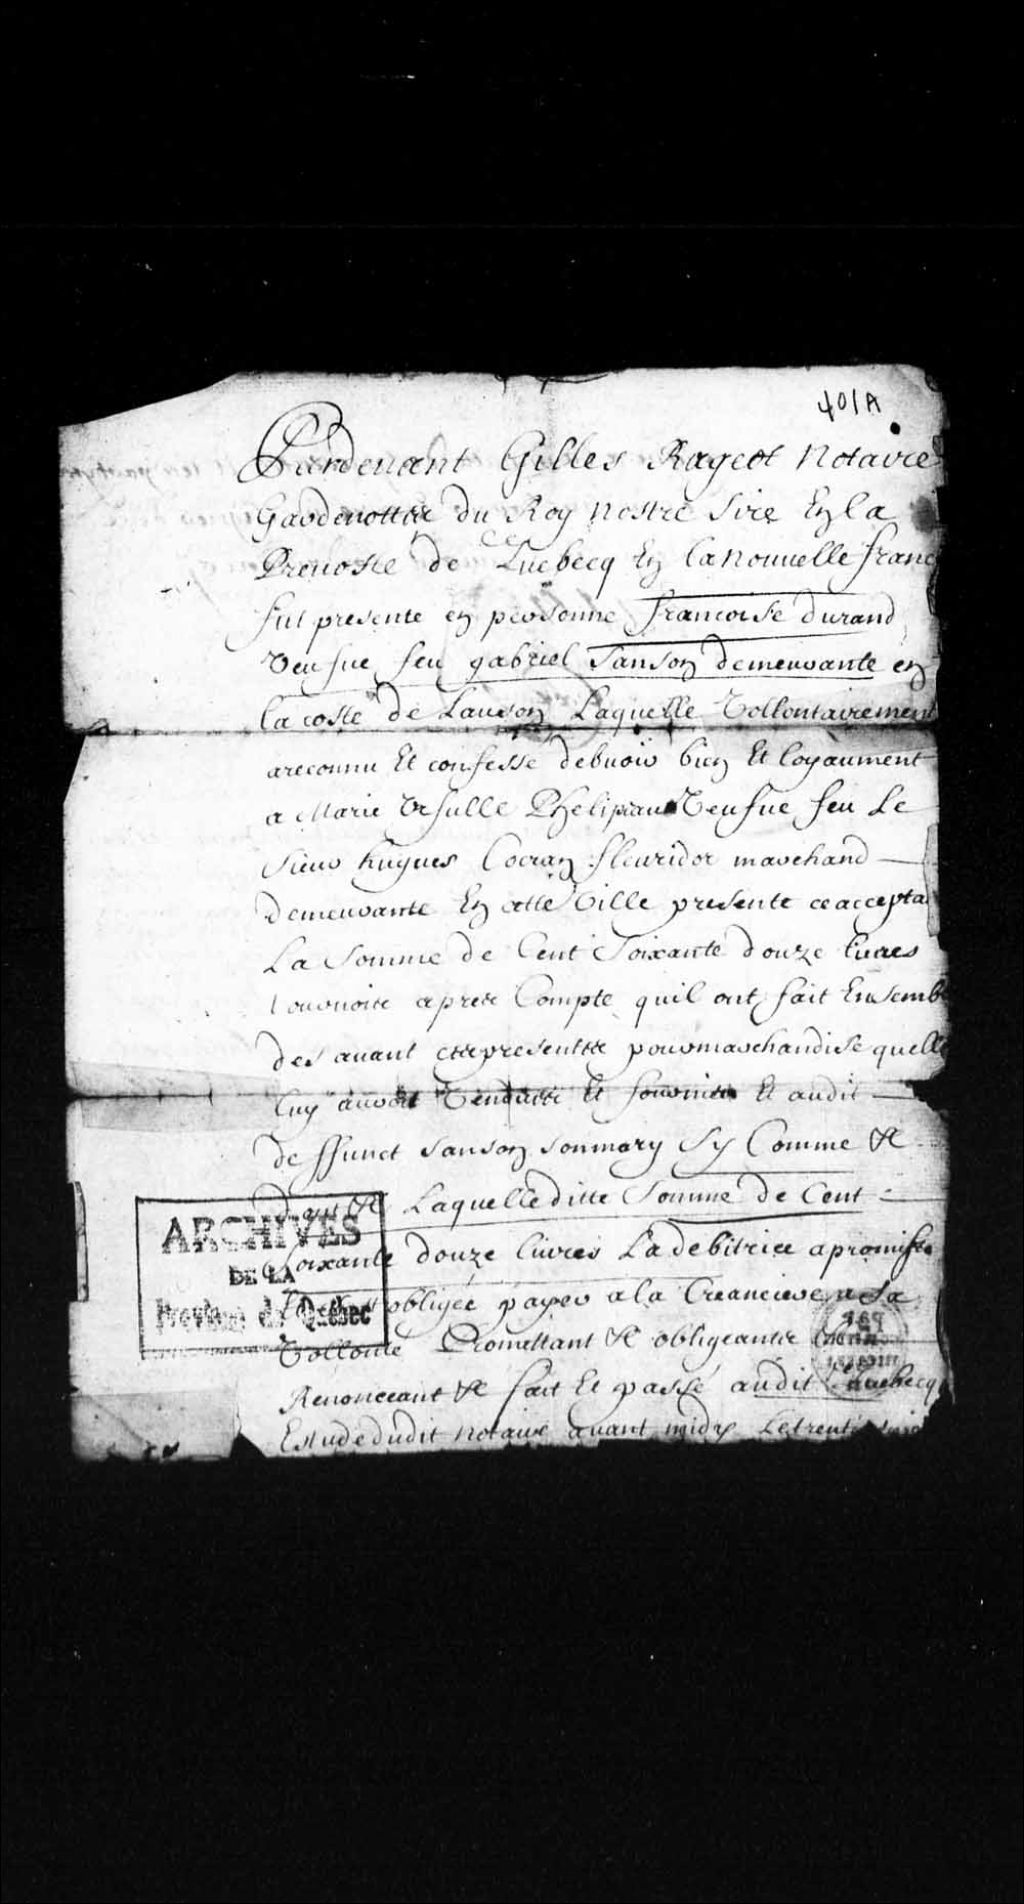 401A
Pardevant Gilles Rageot Notaire
Gardenotte du Roy nostre Sire En la
Prevosté de Quebecq En la nouvelle franc
fut presente en personne francoise durand
Veufue feu gabriel Sanson demeurante en
la coste de Lauson Laquelle Vollontairement
a reconnu Et confesse debuoir bien Et loyaument
a Marie Vrsulle Phelipeau Veufue feu Le
Sieur hugues Cocran fleuridor marchand
demeurante En cette Ville presente ce accepta
La Somme de Cent Soixante douze liures
tournois apres Compte quil ont fait Ensemb
des auant ces presentes pour marchandise quelle
luy auroit Vendues Et fournies Et audit
deffunct Sanson son mary Sy Comme &c
dont &c Laquelle ditte Somme de Cent
Soixante douze liures La debitrice a promis
obligée payer a la Creanciere a Sa
Vollonté Promettant &c obligeante
Renonceant &c fait Et passé audit Quebecq
Estude dudit notaire auant midy Le trente
ARCHIVES
DE LA
Province de Québec